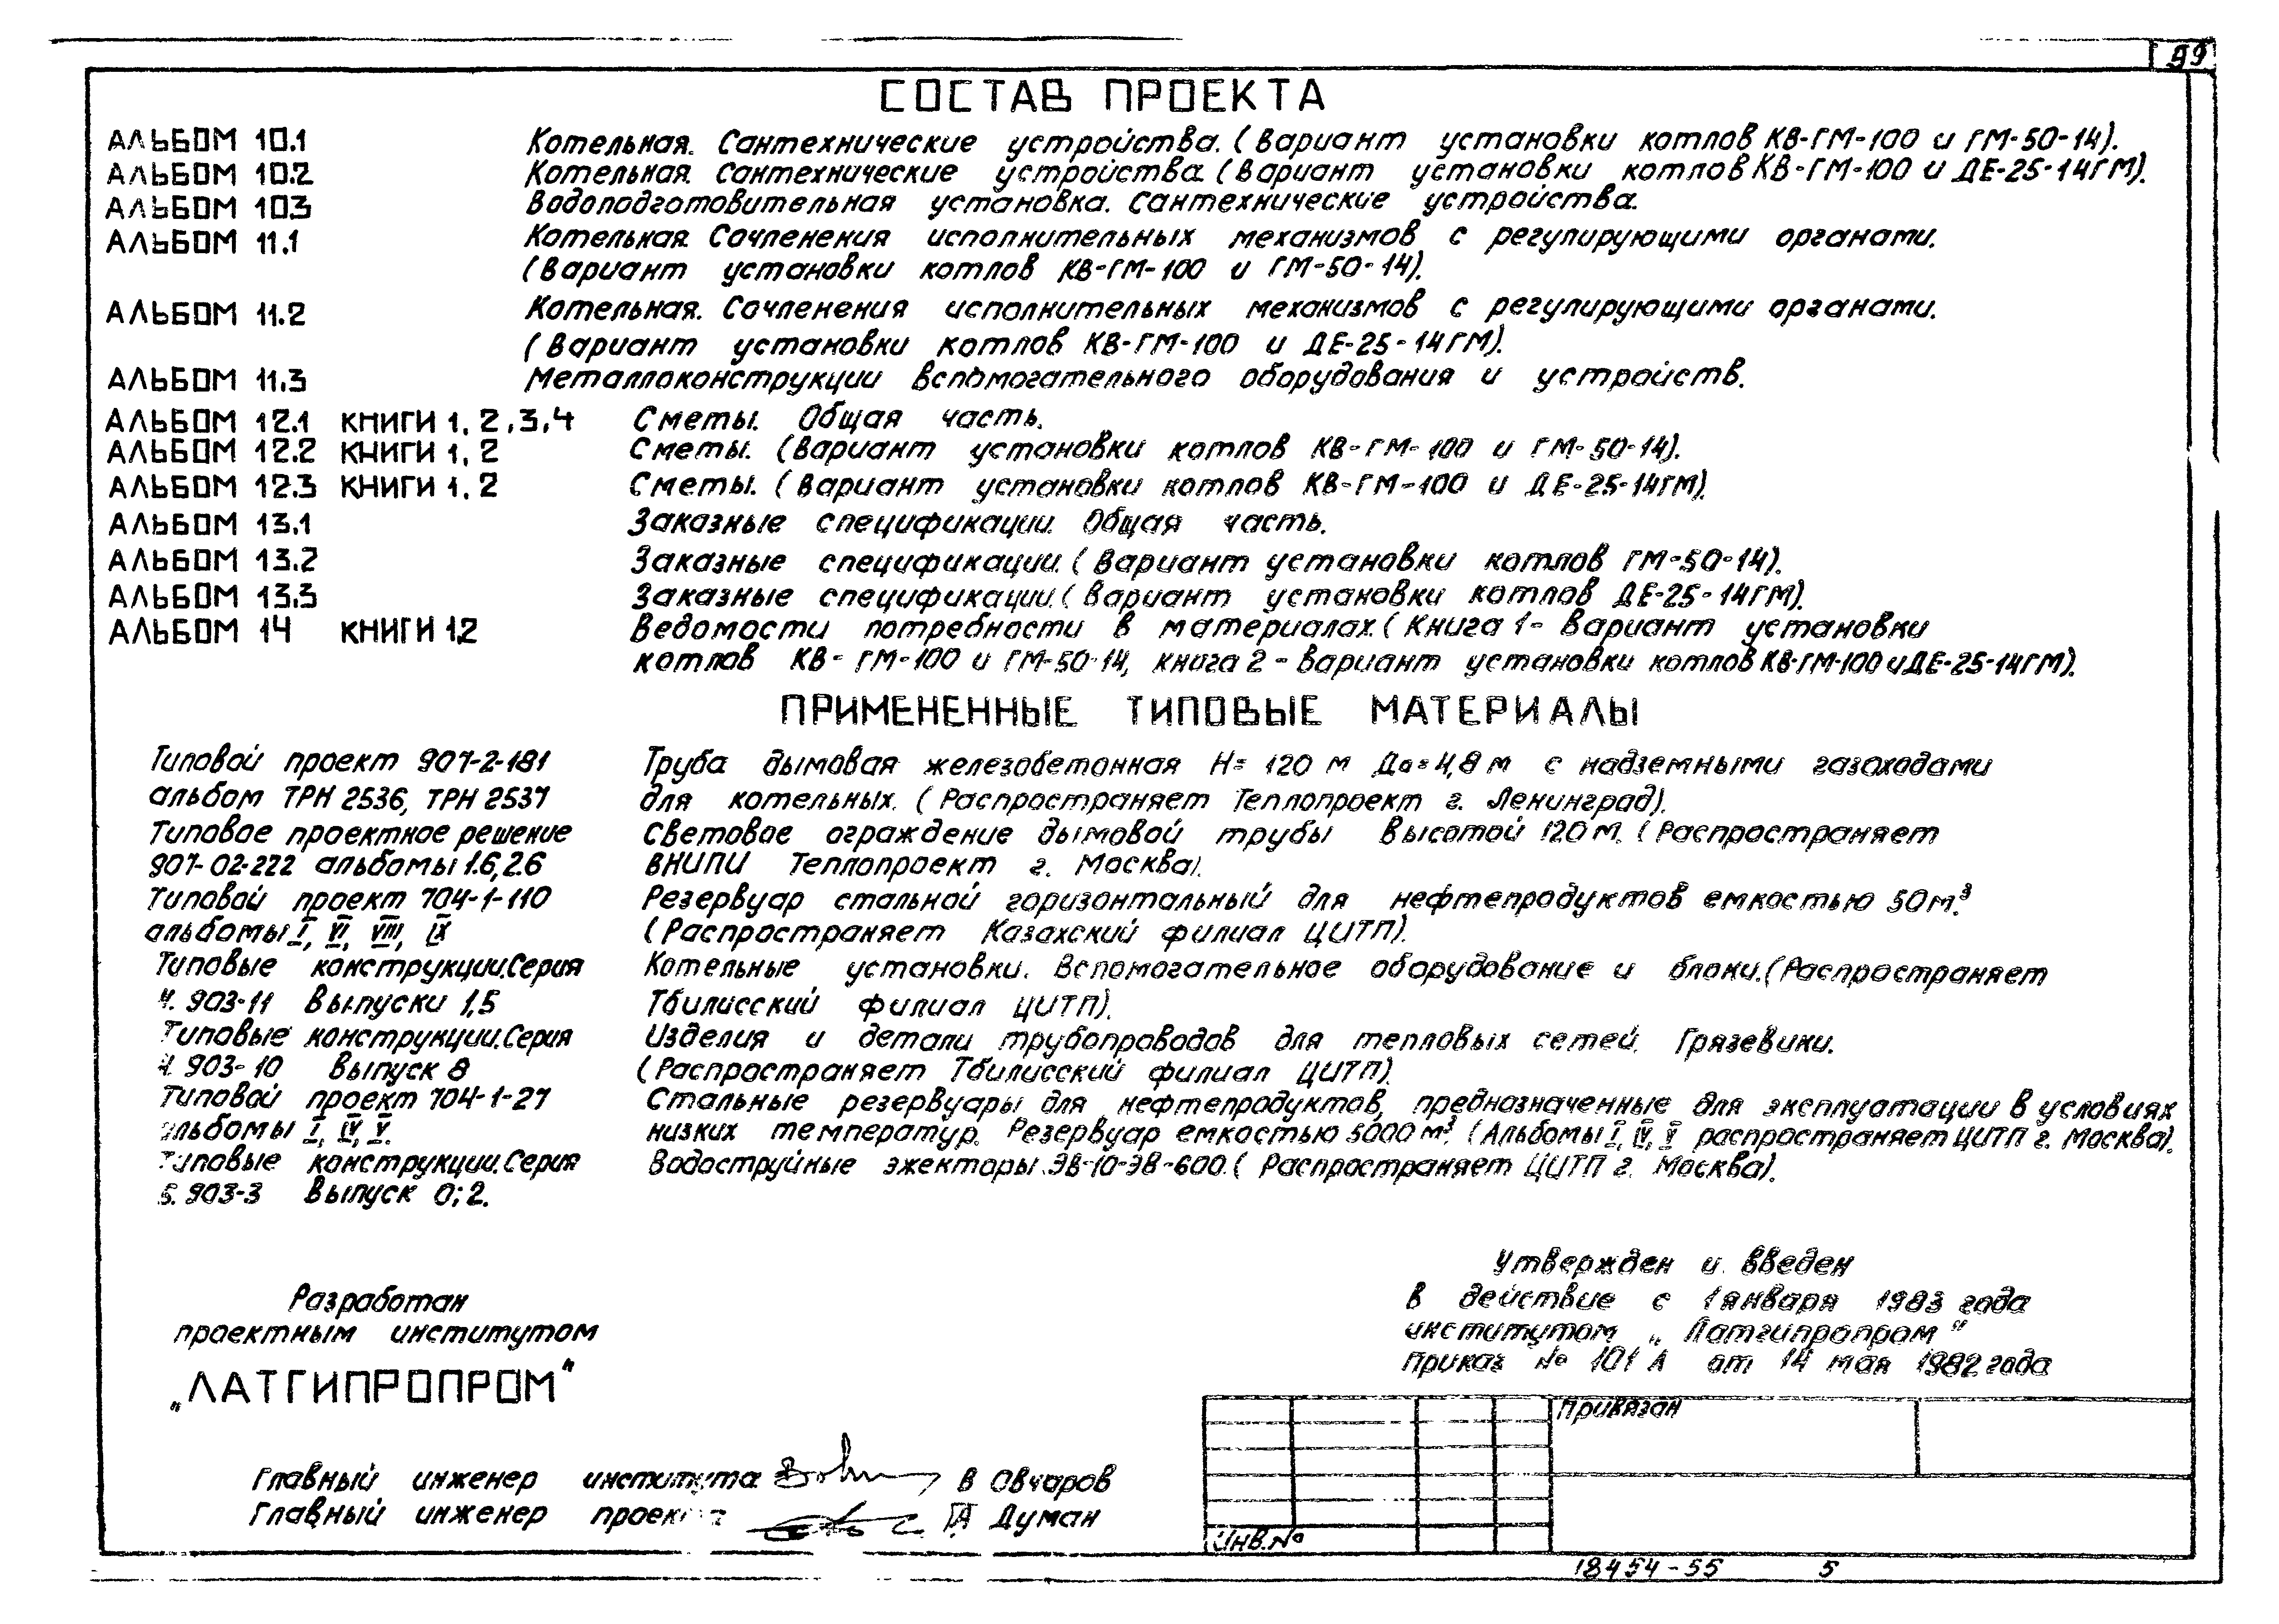 99
СОСТАВ ПРОЕКТА
АЛЬБОМ 10.1 Котельная. Сантехнические устройства. (Вариант установки котлов КВ-ГМ-100 и ГМ-50-14).
АЛЬБОМ 10.2 Котельная. Сантехнические устройства. (Вариант установки котлов КВ-ГМ-100 и ДЕ-25-14ГМ).
АЛЬБОМ 10.3 Водоподготовительная установка. Сантехнические устройства.
АЛЬБОМ 11.1 Котельная. Сочленения исполнительных механизмов с регулирующими органами.
(Вариант установки котлов КВ-ГМ-100 и ГМ-50-14).
АЛЬБОМ 11.2 Котельная. Сочленения исполнительных механизмов с регулирующими органами.
(Вариант установки котлов КВ-ГМ-100 и ДЕ-25-14ГМ).
АЛЬБОМ 11.3 Металлоконструкции вспомогательного оборудования и устройств.
АЛЬБОМ 12.1 КНИГИ 1, 2, 3, 4 Сметы. Общая часть.
АЛЬБОМ 12.2 КНИГИ 1, 2 Сметы. (Вариант установки котлов КВ-ГМ-100 и ГМ-50-14).
АЛЬБОМ 12.3 КНИГИ 1, 2 Сметы. (Вариант установки котлов КВ-ГМ-100 и ДЕ-25-14ГМ).
АЛЬБОМ 13.1 Заказные спецификации. Общая часть.
АЛЬБОМ 13.2 Заказные спецификации. (Вариант установки котлов ГМ-50-14).
АЛЬБОМ 13.3 Заказные спецификации. (Вариант установки котлов ДЕ-25-14ГМ).
АЛЬБОМ 14 КНИГИ 1,2 Ведомости потребности в материалах. (Книга 1- Вариант установки
котлов КВ-ГМ-100 и ГМ-50-14, книга 2 - Вариант установки котлов КВ-ГМ-100 и ДЕ-25-14ГМ).
ПРИМЕНЕННЫЕ ТИПОВЫЕ МАТЕРИАЛЫ
Типовой проект 907-2-181 Труба дымовая железобетонная Н= 120 м До=4,8 м с надземными газоходами
альбом ТРН 2536, ТРН 2537 для котельных. (Распространяет Теплопроект г. Ленинград).
Типовое проектное решение Световое ограждение дымовой трубы высотой 120 м. (Распространяет
907-02-222 альбомы 1.6, 2.6 ВНИПИ Теплопроект г. Москва).
Типовой проект 704-1-110 Резервуар стальной горизонтальный для нефтепродуктов емкостью 50м.³
альбомы I, VI, VIII, IX (Распространяет Казахский филиал ЦИТП).
Типовые конструкции. Серия Котельные установки. Вспомогательное оборудование и блоки. (Распространяет
4. 903-11 Выпуски 1,5 Тбилисский филиал ЦИТП).
Типовые конструкции. Серия Изделия и детали трубопроводов для тепловых сетей. Грязевики.
4. 903-10 Выпуск 8 (Распространяет Тбилисский филиал ЦИТП).
Типовой проект 704-1-27 Стальные резервуары для нефтепродуктов, предназначенные для эксплуатации в условиях
альбомы I, IV, V. низких температур. Резервуар емкостью 5000 м³. (Альбомы I, IV, V распространяет ЦИТП г. Москва).
Типовые конструкции. Серия Водоструйные эжекторы ЭВ-10-ЭВ-600. (Распространяет ЦИТП г. Москва).
5. 903-3 Выпуск 0; 2.
Утвержден и введен
в действие с 1 января 1983 года
институтом „Латгипропром“
Приказ № 101 А от 14 мая 1982 года
Разработан
проектным институтом
„ЛАТГИПРОПРОМ“
Главный инженер института В Овчаров
Главный инженер проекта Думан
Привязан
Инв. №
18454-55 5